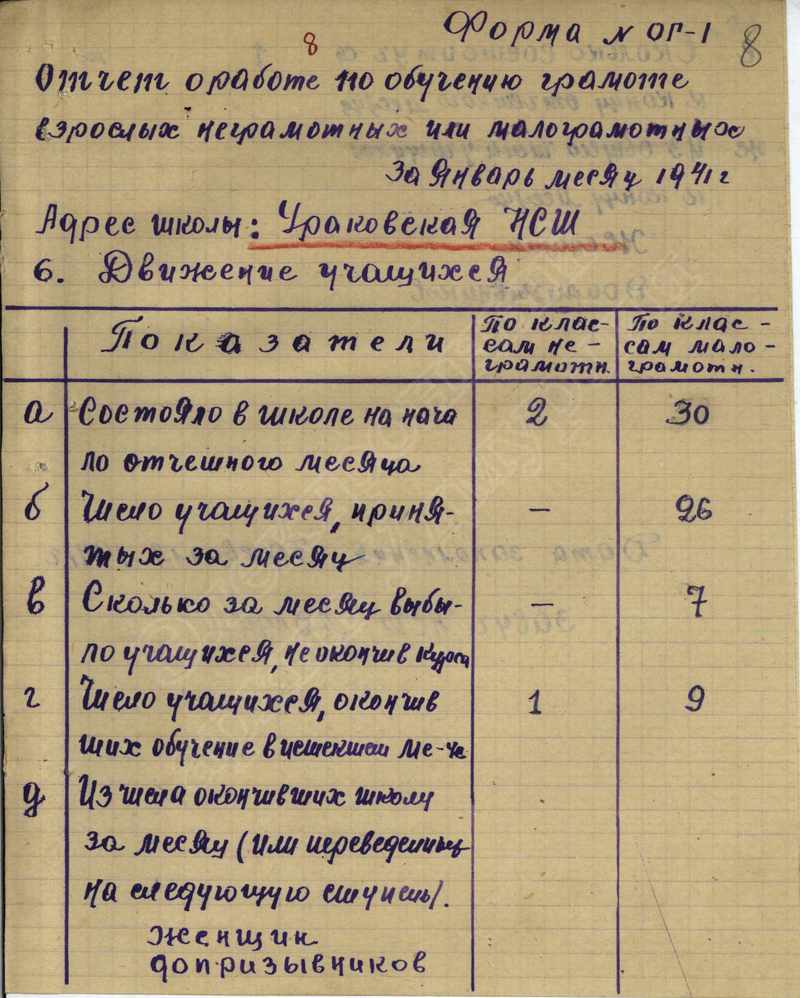 Форма N ОГ-1
8
8
Отчет о работе по обучению грамоте
взрослых неграмотных или малограмотных
за январь месяц 1941 г
Адрес школы: Ураковская НСШ
6. Движение учащихся
Показатели
По клас-
сам не-
грамотн.
По клас-
сам мало-
грамотн.
а Состояло в школе на нача 2 30
ло отчетного месяца
б Число учащихся, приня- — 26
тых за месяц
в Сколько за месяц выбы- — 7
ло учащихся, не окончив курса
г Число учащихся, окончив 1 9
ших обучение в истекшем ме-це
д Из числа окончивших школу
за месяц (или переведенных
на следующую ступень).
женщин
допризывников